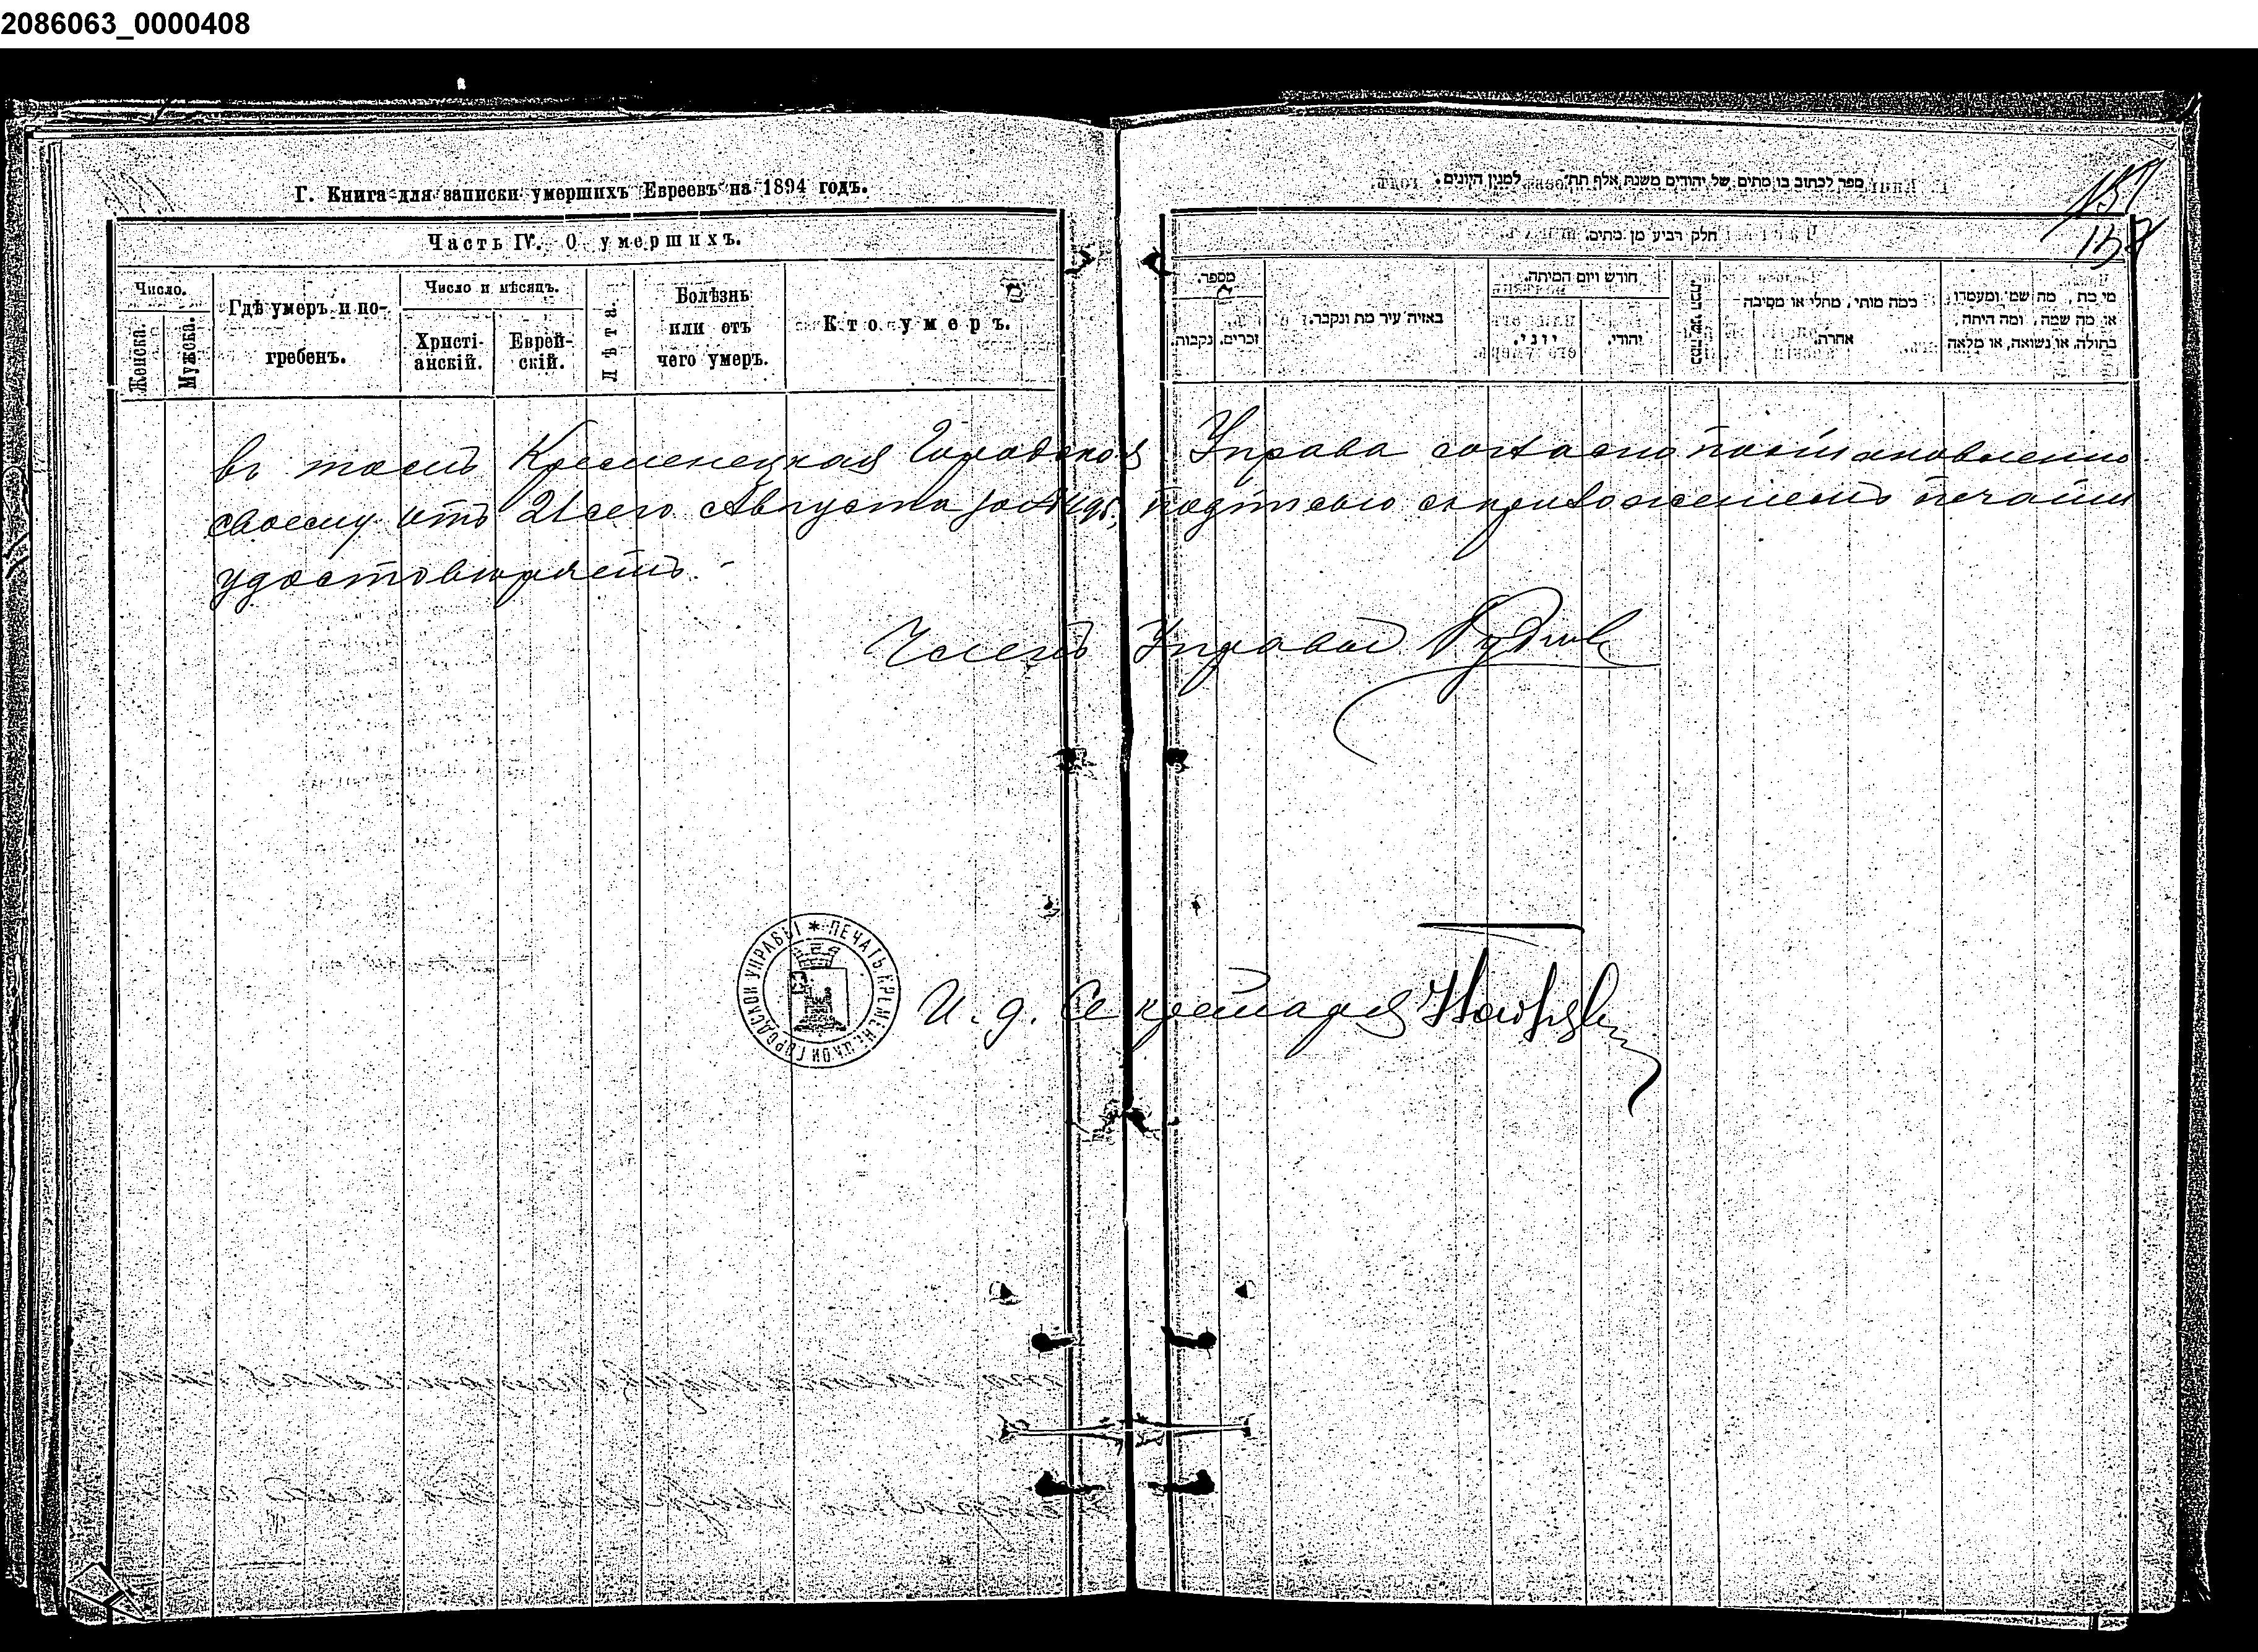 2086063_0000408
Г. Книга для записки умершихъ Евреевъ на 1894 годъ.
Часть IV. О умершихъ.
Число.
Женска.
Мужска.
Гдѣ умеръ и по-
гребенъ.
Число и мѣсяцъ.
Христі-
анскій.
Еврей-
скій.
Лѣта.
Болѣзнь
или отъ
чего умеръ.
Кто умеръ.
ספר לכתוב בו מתים של יהודים משנת אלף תת״ למנין היונים.
157
חלק רביע מן מתים.
מספר.
נקבות.
זכרים.
באיזה עיר מת ונקבר.
חודש ויום המיתה.
יוני.
יהודי.
כמה שני
במה מותי, מחלי או מסיבה
אחרת.
מי מת, מה שמו ומעמדו,
או מה שמה, ומה היתה,
בתולה, או נשואה, או מלאה
въ томъ Кременецкая Городская Управа согласно постановленію
своему отъ 21 сего Августа подписью съ приложеніемъ печати
удостовѣряетъ.
Членъ Управы
ПЕЧАТЬ КРЕМЕНЕЦКОЙ ГОРОДСКОЙ УПРАВЫ
И. д. Секретаря